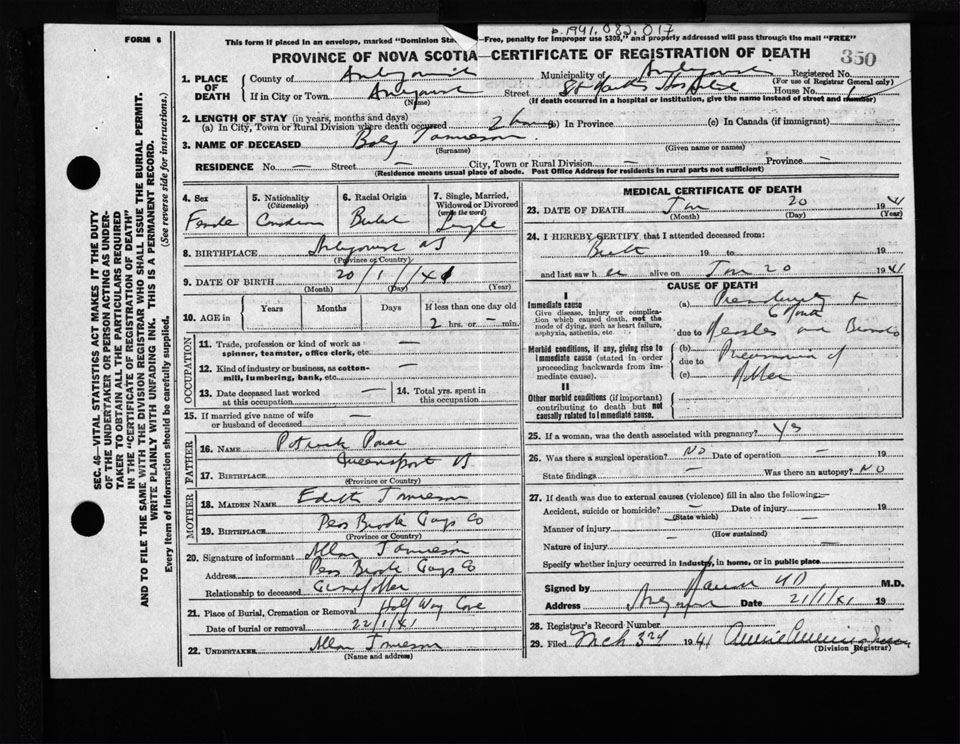 b. 1941.082.017
FORM 6
This form if placed in an envelope, marked "Dominion Sta —Free, penalty for improper use $300," and properly addressed will pass through the mail "FREE"
PROVINCE OF NOVA SCOTIA—CERTIFICATE OF REGISTRATION OF DEATH
350
1. PLACE OF DEATH
County of
Municipality of
Registered No.
(For use of Registrar General only)
If in City or Town
(Name)
Street St Hospital House No.
(If death occurred in a hospital or institution, give the name instead of street and number)
2. LENGTH OF STAY (in years, months and days)
(a) In City, Town or Rural Division where death occurred 2 hours (b) In Province (c) In Canada (if immigrant)
3. NAME OF DECEASED Baby Jamieson
(Surname) (Given name or names)
RESIDENCE No. — Street — City, Town or Rural Division — Province —
(Residence means usual place of abode. Post Office Address for residents in rural parts not sufficient)
4. Sex
Female
5. Nationality
(Citizenship)
6. Racial Origin
7. Single, Married, Widowed or Divorced
(write the word)
Single
8. BIRTHPLACE
(Province or Country)
9. DATE OF BIRTH 20/1/41
(Month) (Day) (Year)
10. AGE in
Years Months Days If less than one day old
2 hrs. or – min.
OCCUPATION
11. Trade, profession or kind of work as spinner, teamster, office clerk, etc. —
12. Kind of industry or business, as cotton-mill, lumbering, bank, etc. —
13. Date deceased last worked at this occupation —
14. Total yrs. spent in this occupation
15. If married give name of wife or husband of deceased —
FATHER
16. NAME Patrick
17. BIRTHPLACE Queensport NS
(Province or Country)
MOTHER
18. MAIDEN NAME Edith Jamieson
19. BIRTHPLACE Peas Brook Guys Co
(Province or Country)
20. Signature of informant Allan Jamieson
Address Peas Brook Guys Co
Relationship to deceased Grandfather
21. Place of Burial, Cremation or Removal Half Way Cove
Date of burial or removal 22/1/41
22. UNDERTAKER Allan Jamieson
(Name and address)
MEDICAL CERTIFICATE OF DEATH
23. DATE OF DEATH Jan 20 1941
(Month) (Day) (Year)
24. I HEREBY CERTIFY, that I attended deceased from:
Birth 19 to 19
and last saw h er alive on Jan 20 1941
CAUSE OF DEATH
I
Immediate cause
Give disease, injury or complication which caused death, not the mode of dying, such as heart failure, asphyxia, asthenia, etc.
(a) Prematurity
6 Month
due to Measles and Broncho
Morbid conditions, if any, giving rise to immediate cause (stated in order proceeding backwards from immediate cause).
(b) Pneumonia of
due to
(c) Mother
II
Other morbid conditions (if important) contributing to death but not causally related to immediate cause.
25. If a woman, was the death associated with pregnancy? Yes
26. Was there a surgical operation? NO Date of operation — 19
State findings — Was there an autopsy? NO
27. If death was due to external causes (violence) fill in also the following:—
Accident, suicide or homicide? — Date of injury 19
(State which)
Manner of injury —
(How sustained)
Nature of injury —
Specify whether injury occurred in Industry, in home, or in public place
Signed by MD M.D.
Address Date 21/1/41 19
28. Registrar's Record Number
29. Filed Mch 3rd 1941 Annie
(Division Registrar)
SEC. 46—VITAL STATISTICS ACT MAKES IT THE DUTY
OF THE UNDERTAKER OR PERSON ACTING AS UNDER-
TAKER TO OBTAIN ALL THE PARTICULARS REQUIRED
IN THE "CERTIFICATE OF REGISTRATION OF DEATH"
AND TO FILE THE SAME WITH THE DIVISION REGISTRAR WHO SHALL ISSUE THE BURIAL PERMIT.
WRITE PLAINLY WITH UNFADING INK. THIS IS A PERMANENT RECORD.
Every item of information should be carefully supplied. (See reverse side for instructions.)